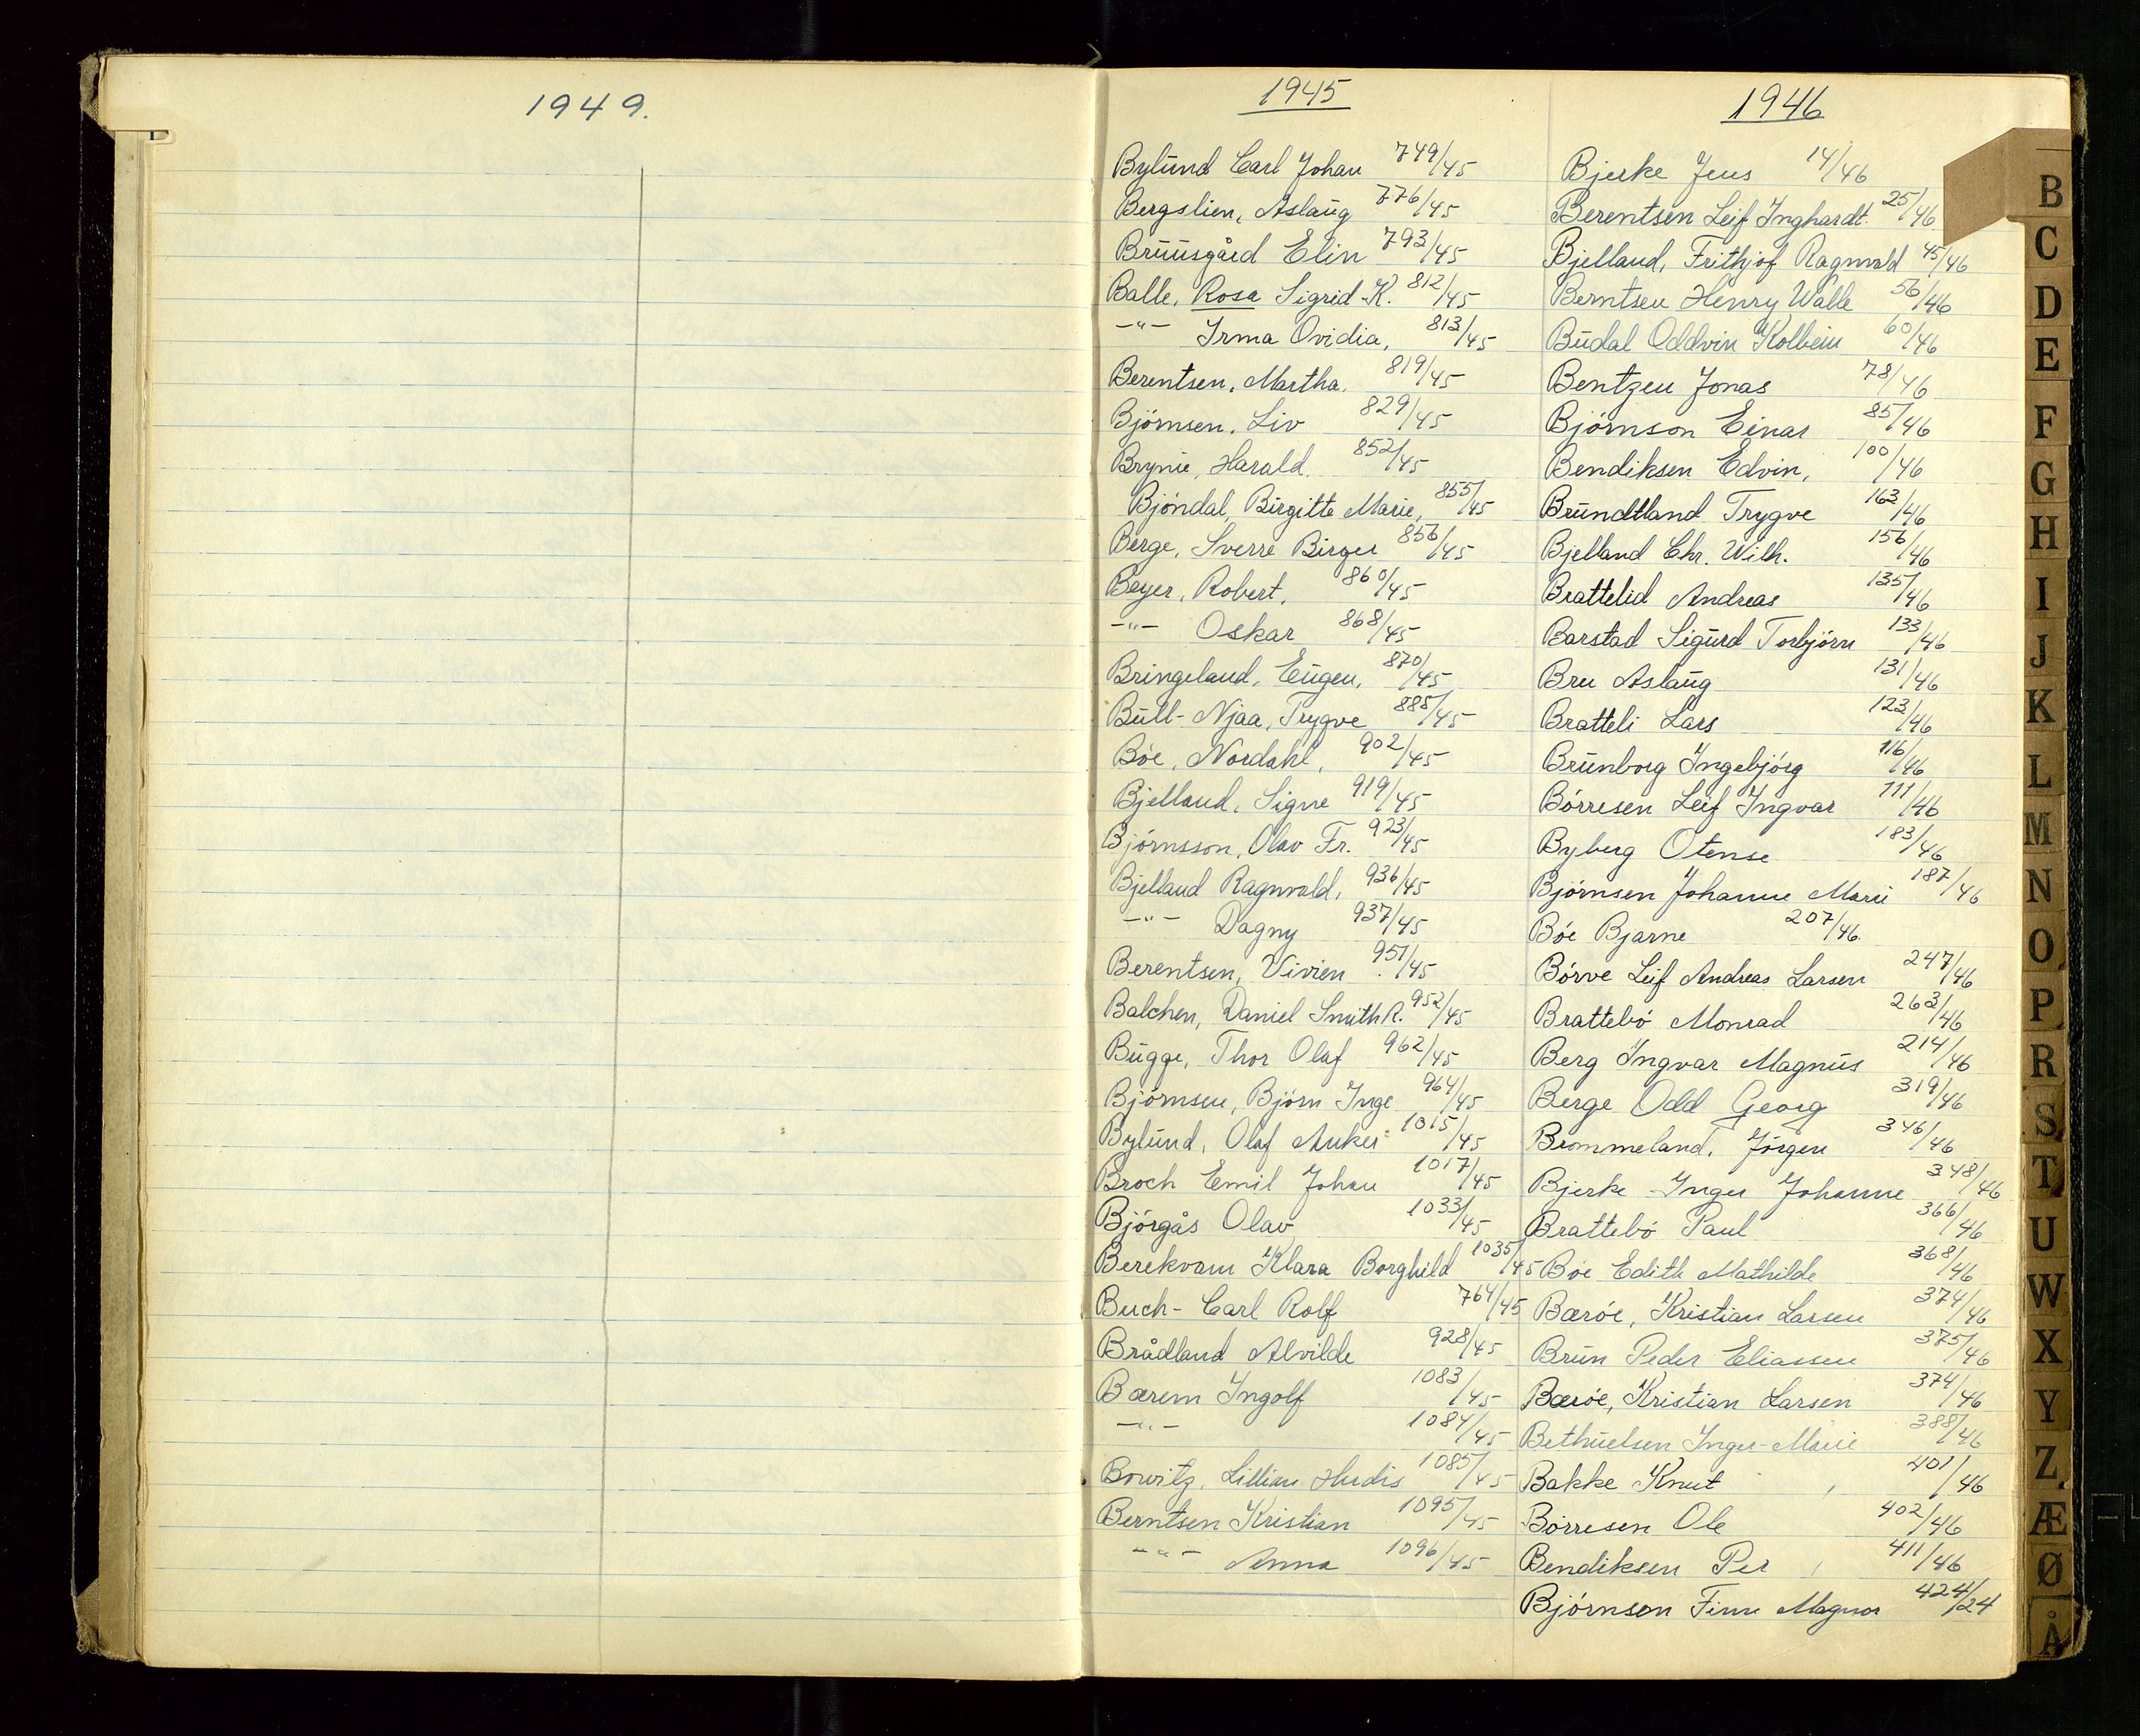 1949.
1945
Bylund Carl Johan 749/45
Bergslien, Aslaug 776/45
Bruusgård Elin 793/45
Balle, Rosa Sigrid K. 812/45
-"- Irma Ovidia, 813/45
Berentsen, Martha. 819/45
Björnsen, Liv 829/45
Brynie, Harald. 852/45
Bjóndal, Birgitte Marie, 855/45
Berge, Sverre Birger 856/45
Beyer, Robert, 860/45
-"- Oskar 868/45
Bringeland, Eugen, 870/45
Bull-Njaa, Trygve 885/45
Bóe, Nordahl, 902/45
Bjelland, Signe 919/45
Bjórnsson, Olav Fr. 923/45
Bjelland Ragnvald, 936/45
-"- Dagny 937/45
Berentsen, Vivien 951/45
Balchen, Daniel Smith R. 952/45
Bugge, Thor Olaf 962/45
Bjórnsen, Bjórn Inge 964/45
Bylund, Olaf Anker 1015/45
Broch Emil Johan 1017/45
Bjórgås Olav 1033/45
Berekvam Klara Borghild 1035/45
Buch- Carl Rolf 764/45
Brådland Alvilde 928/45
Bærem Ingolf 1083/45
-"- 1084/45
Bowitz, Lillian Hudis 1085/45
Berntsen Kristian 1095/45
-"- Anna 1096/45
1946
Bjerke Jens 14/46
Berentsen Leif Inghardt. 25/46
Bjelland, Frithjof Ragnvald 45/46
Berntsen Henry Walle 56/46
Budal Oddvin Kolbein 60/46
Bentzen Jonas 78/46
Bjórnson Einar 85/46
Bendiksen Edvin, 100/46
Brundtland Trygve 163/46
Bjelland Chr. Wilh. 156/46
Brattelid Andreas 135/46
Barstad Sigurd Torbjórn 133/46
Bru Aslaug 131/46
Bratteli Lars 123/46
Brunborg Ingebjórg 116/46
Bórresen Leif Ingvar 111/46
Byberg Otense 183/46
Bjórnsen Johanne Marie 187/46
Bóe Bjarne 207/46
Bórve Leif Andreas Larsen 247/46
Brattebó Monrad 263/46
Berg Ingvar Magnus 214/46
Berge Odd Georg 319/46
Brommeland, Jórgen 346/46
Bjerke Inger Johanne 348/46
Brattebó Paul 366/46
Bóe Edith Mathilde 368/46
Bæróe, Kristian Larsen 374/46
Brun Peder Eliassen 375/46
Bæróe, Kristian Larsen 374/46
Bethuelsen Inger-Marie 388/46
Bakke Knut, 401/46
Bórresen Ole 402/46
Bendiksen Per, 411/46
Bjórnson Finn Magnor 424/24
B
C
D
E
F
G
H
I
J
K
L
M
N
O
P
R
S
T
U
W
X
Y
Z
Æ
Ø
Å